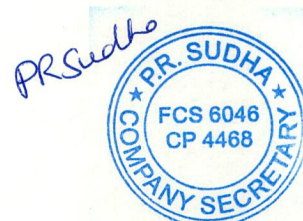 PRSudha
★ P.R. SUDHA ★
FCS 6046
CP 4468
COMPANY SECRETARY